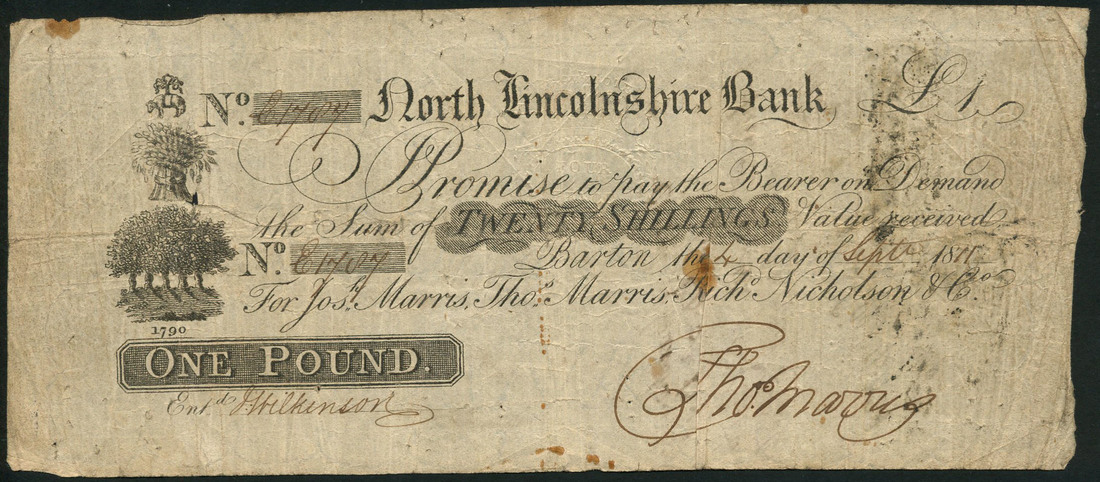 No. E1707 North Lincolnshire Bank £1
I Promise to pay the Bearer on Demand
the Sum of TWENTY SHILLINGS Value received
No. E1707 Barton the 4 day of Septr 1811
For Josh. Marris, Thos. Marris, Richd. Nicholson & Co.
1790
ONE POUND.
Entd. J Wilkinson
Thos. Marris